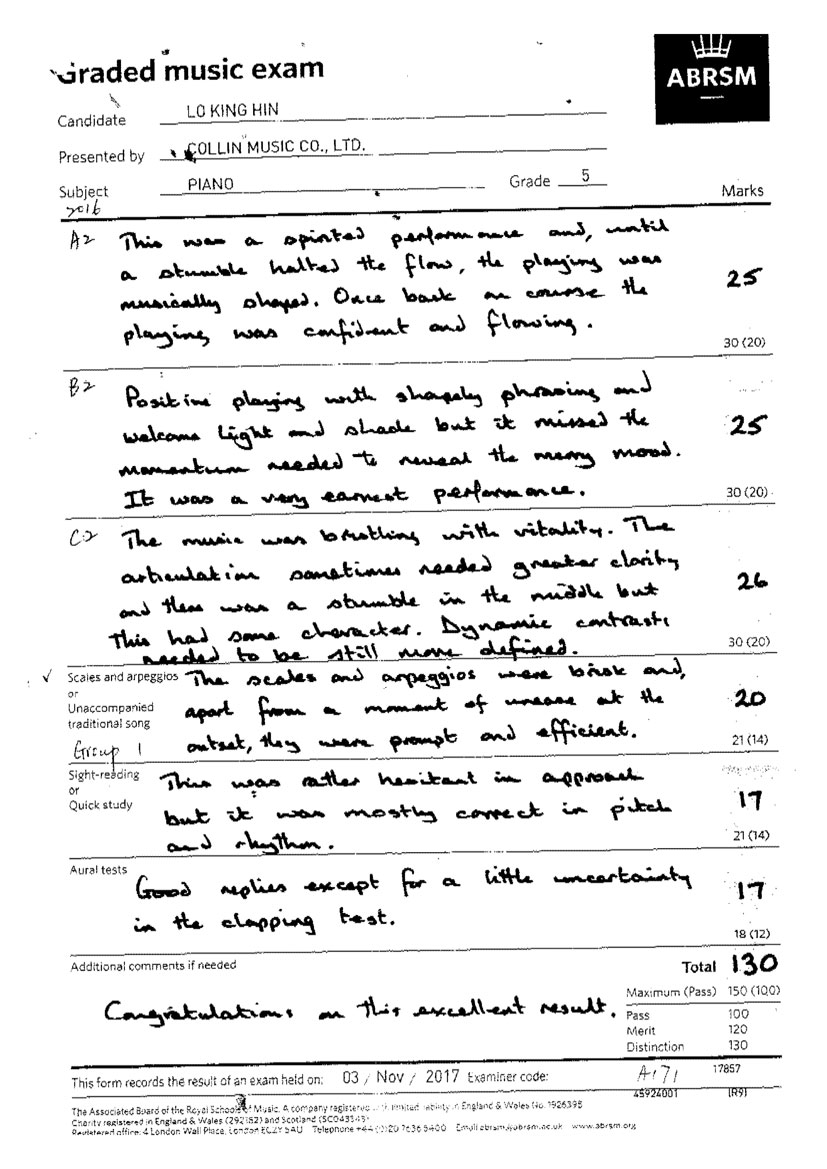 Graded music exam
ABRSM
Candidate LO KING HIN
Presented by COLLIN MUSIC CO., LTD.
Subject PIANO Grade 5 Marks
2016
A2 This was a spirited performance and, until
a stumble halted the flow, the playing was
musically shaped. Once back on course the
playing was confident and flowing.
25
30 (20)
B2 Positive playing with shapely phrasing and
welcome light and shade but it missed the
momentum needed to reveal the merry mood.
It was a very earnest performance.
25
30 (20)
C2 The music was bristling with vitality. The
articulation sometimes needed greater clarity
and there was a stumble in the middle but
this had some character. Dynamic contrasts
needed to be still more defined.
26
30 (20)
✓ Scales and arpeggios
or
Unaccompanied
traditional song
Group 1
The scales and arpeggios were brisk and,
apart from a moment of unease at the
outset, they were prompt and efficient.
20
21 (14)
Sight-reading
or
Quick study
This was rather hesitant in approach
but it was mostly correct in pitch
and rhythm.
17
21 (14)
Aural tests
Good replies except for a little uncertainty
in the clapping test.
17
18 (12)
Additional comments if needed
Total 130
Congratulations on this excellent result.
Maximum (Pass) 150 (100)
Pass 100
Merit 120
Distinction 130
This form records the result of an exam held on: 03 / Nov / 2017 Examiner code: A171 17857
45924001 (R9)
The Associated Board of the Royal Schools of Music. A company registered with limited liability in England & Wales No. 1926395
Charity registered in England & Wales (292182) and Scotland (SC043453)
Registered office: 4 London Wall Place, London EC2Y 5AU Telephone +44 (0)20 7636 5400 Email abrsm@abrsm.ac.uk www.abrsm.org